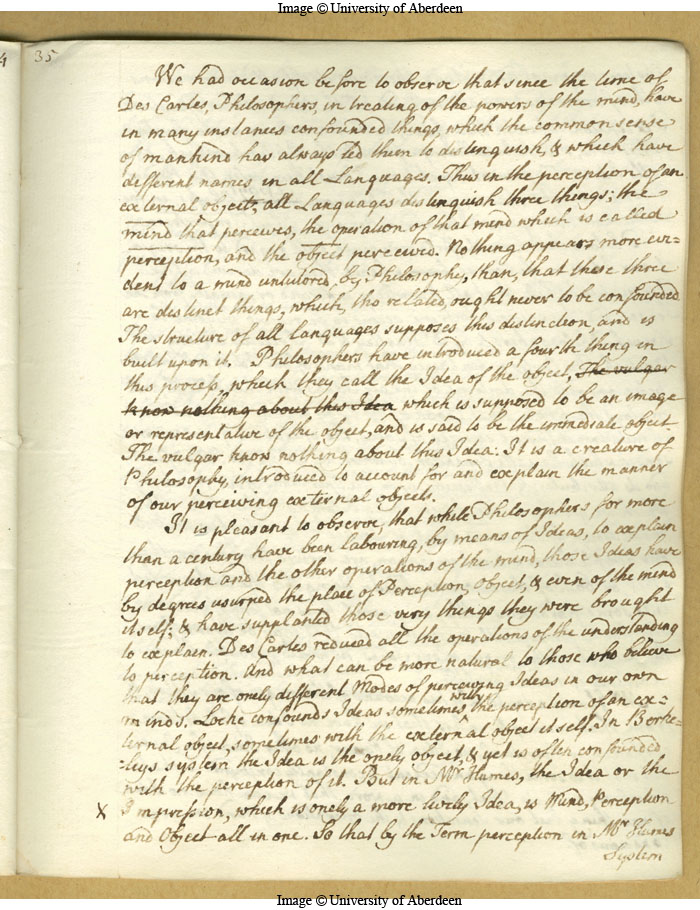 Image © University of Aberdeen
4
35
We had occasion before to observe that since the time of
Des Cartes, Philosophers, in treating of the powers of the mind, have
in many instances confounded things, which the common sense
of mankind has always led them to distinguish, & which have
different names in all Languages. Thus in the perception of an
external object, all Languages distinguish three things; the
mind that perceives, the operation of that mind which is called
perception, and the object perceived. Nothing appears more evi=
dent to a mind untutored, by Philosophy, than, that these three
are distinct things, which, tho related, ought never to be confounded
The structure of all languages supposes this distinction, and is
built upon it. Philosophers have introduced a fourth thing in
this process, which they call the Idea of the object, The vulgar
know nothing about this Idea which is supposed to be an image
or representative of the object, and is said to be the immediate object
The vulgar know nothing about this Idea: It is a creature of
Philosophy, introduced to account for and explain the manner
of our perceiving external objects.
It is pleasant to observe, that while Philosophers for more
than a century have been labouring, by means of Ideas, to explain
perception and the other operations of the mind, those Ideas have
by degrees usurped the place of Perception, object, & even of the mind
itself; & have supplanted those very things they were brought
to explain. Des Cartes reduced all the operations of the understanding
to perception. And what can be more natural to those who believe
that they are onely different Modes of perceiving Ideas in our own
minds. Locke confounds Ideas sometimes with the perception of an ex=
ternal object, sometimes with the external object itself. In Berke=
=leys system the Idea is the onely object, & yet is often confounded
with the perception of it. But in Mr Humes, the Idea or the
X Impression, which is onely a more lively Idea, is Mind, Perception
and Object all in one. So that by the Term perception in Mr Humes
System
Image © University of Aberdeen